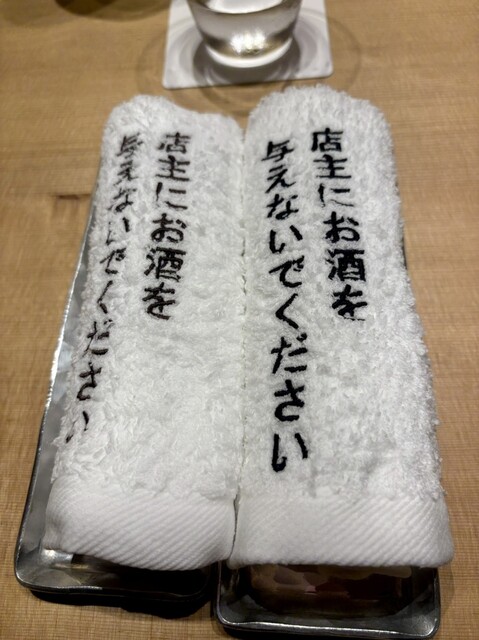 店主にお酒を
与えないでください
店主にお酒を
与えないでください